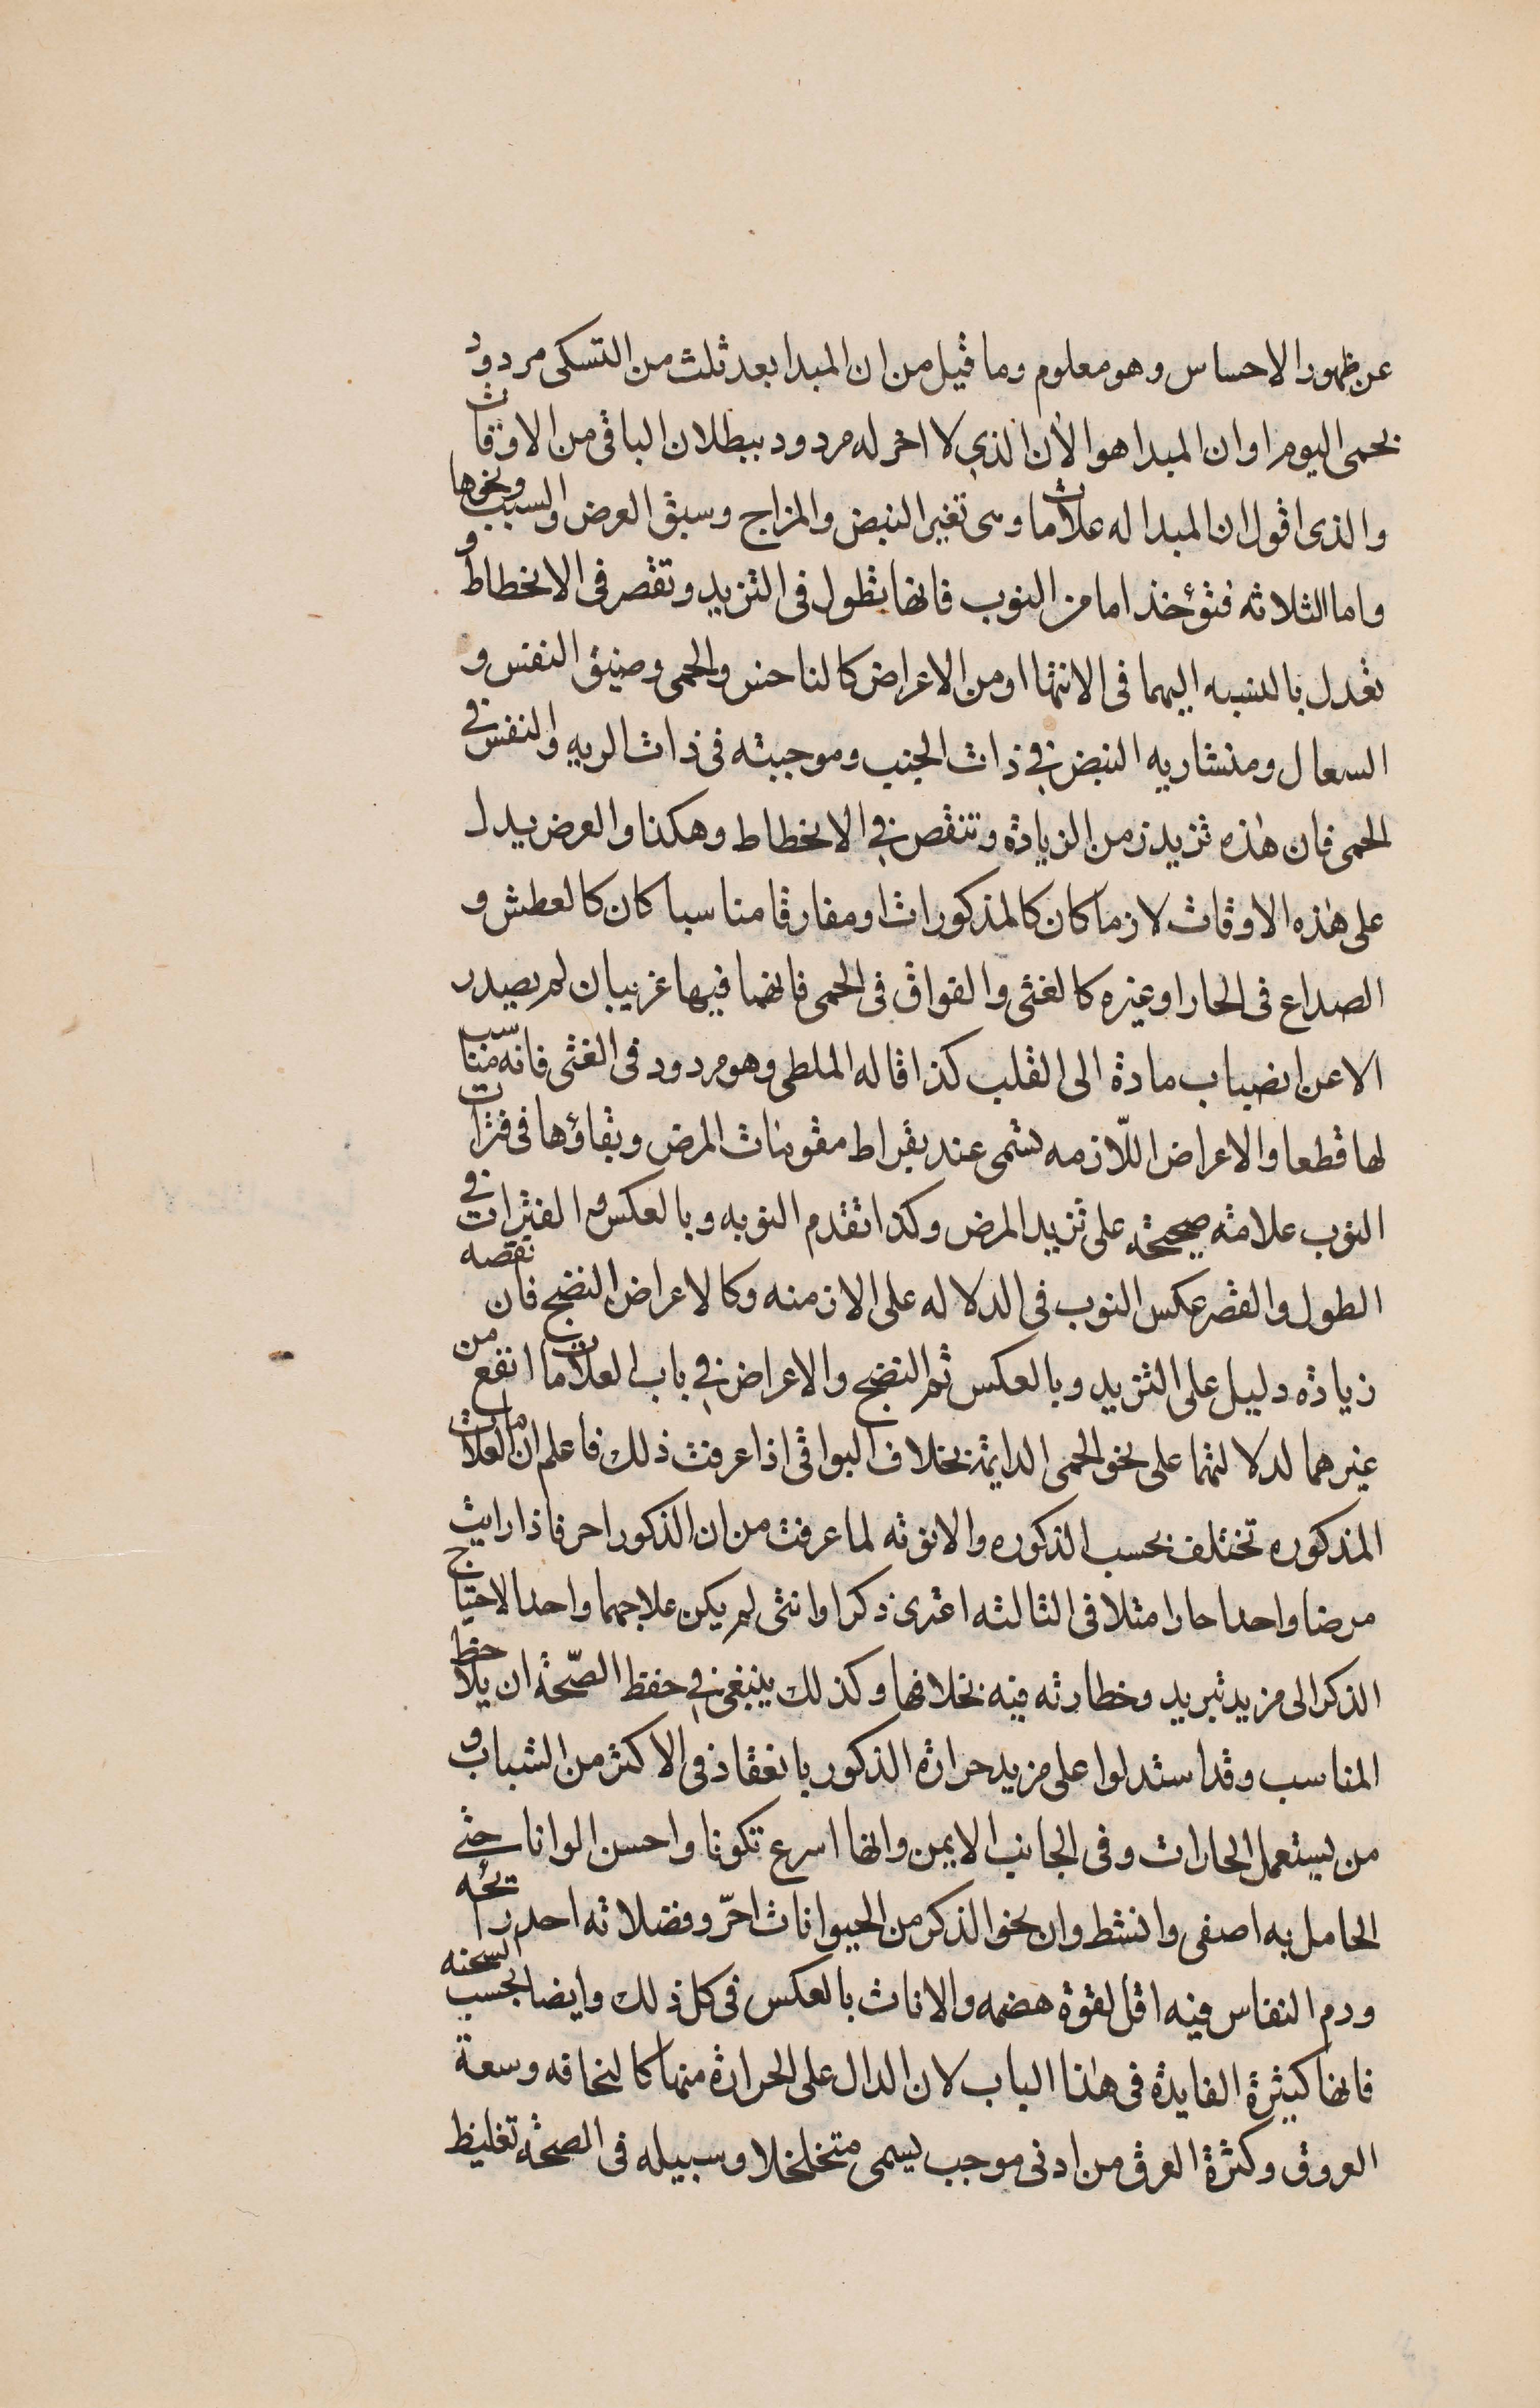 عن ظهور الاحساس وهو معلوم وما قيل من ان المبدا بعد ثلث من التسكى مردود
بحمى اليوم او ان المبدا هو الأن الذي لا اخر له مردود ببطلان الباقى من الاوقات
والذى اقول ان المبدا له علامات وهى تغير النبض والمزاج وسبق العرض والسبب ونحوها
واما الثلاثه فتؤخذ اما من النوب فانها تطول فى التزيد وتقصر فى الانحطاط و
تعدل بالنسبه اليهما فى الانتها او من الاعراض كالناخس والحمى وضيق النفس و
السعال ومنشاريه النبض في ذات الجنب وموجيته فى ذات الريه والنفس في
الحمى فان هذه تزيد زمن الزيادة وتنقص في الانحطاط وهكذا والعرض يدل
على هذه الاوقات لازما كان كالمذكورات او مفارقا مناسبا كان كالعطش و
الصداع فى الحار او غيره كالغثى والفواق فى الحمى فانهما فيها غريبان لم يصدر
الا عن انصباب مادة الى القلب كذا قاله الملطى وهو مردود فى الغثى فانه مناسب
لها قطعا والاعراض اللّازمه تسمى عند بقراط مقومات المرض وبقاؤها فى فترات
النوب علامة صحيحة على تزيد المرض وكذا تقدم النوبه وبالعكس و الفترات في
الطول والقصر عكس النوب فى الدلاله على الازمنه وكالاعراض النضج فان نقصه
زيادة دليل على التزيد وبالعكس ثم النضج والاعراض في باب العلامات انفع من
غيرهما لدلالتهما على نحو الحمى الدايمة بخلاف البواقى اذا عرفت ذلك فاعلم ان العلامات
المذكوره تختلف بحسب الذكوره والانوثه لما عرفت من ان الذكور احر فاذا رايت
مرضا واحدا حارا مثلا فى الثالثه اعترى ذكرا وانثى لم يكن علاجهما واحدا لاحتياج
الذكر الى مزيد تبريد وخطارته فيه بخلافها وكذلك ينبغى في حفظ الصّحة ان يلاحظ
المناسب وقد استدلوا على مزيد حرارة الذكور بانعقاد فى الاكثر من الشباب و
من يستعمل الحارات وفى الجانب الايمن وانها اسرع تكونا واحسن الوانا حتى
الحامل به اصفى وانشط وان نحو الذكر من الحيوانات احرّ وفضلاته احد رائحه
ودم النفاس فيه اقل لقوة هضمه والاناث بالعكس فى كل ذلك وايضا بحسب السحنه
فانها كثيرة الفايدة فى هذا الباب لان الدال على الحرارة منها كالنحافه وسعة
العروق وكثرة العرق من ادنى موجب يسمى متخلخلا وسبيله فى الصحة تغليظ